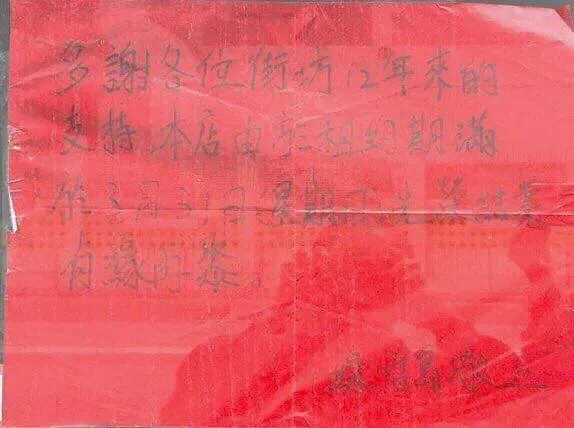 多謝各位街坊12年來的
支持,本店由於租約期滿
於3月31日(星期 光榮結業
有緣再聚。
敬上